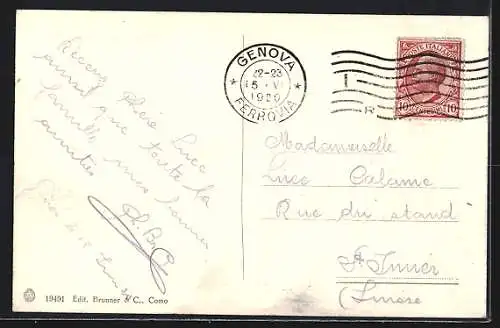 Recevez chère Luce
ainsi que toute la
famille mes bonnes
amitiés
GENOVA
22-23
15 · VI
1920
FERROVIA
POSTE ITALIANE
10 10
Mademoiselle
Luce Calame
Rue du Stand
St Imier
(Suisse
19491 Edit. Brunner & C., Como